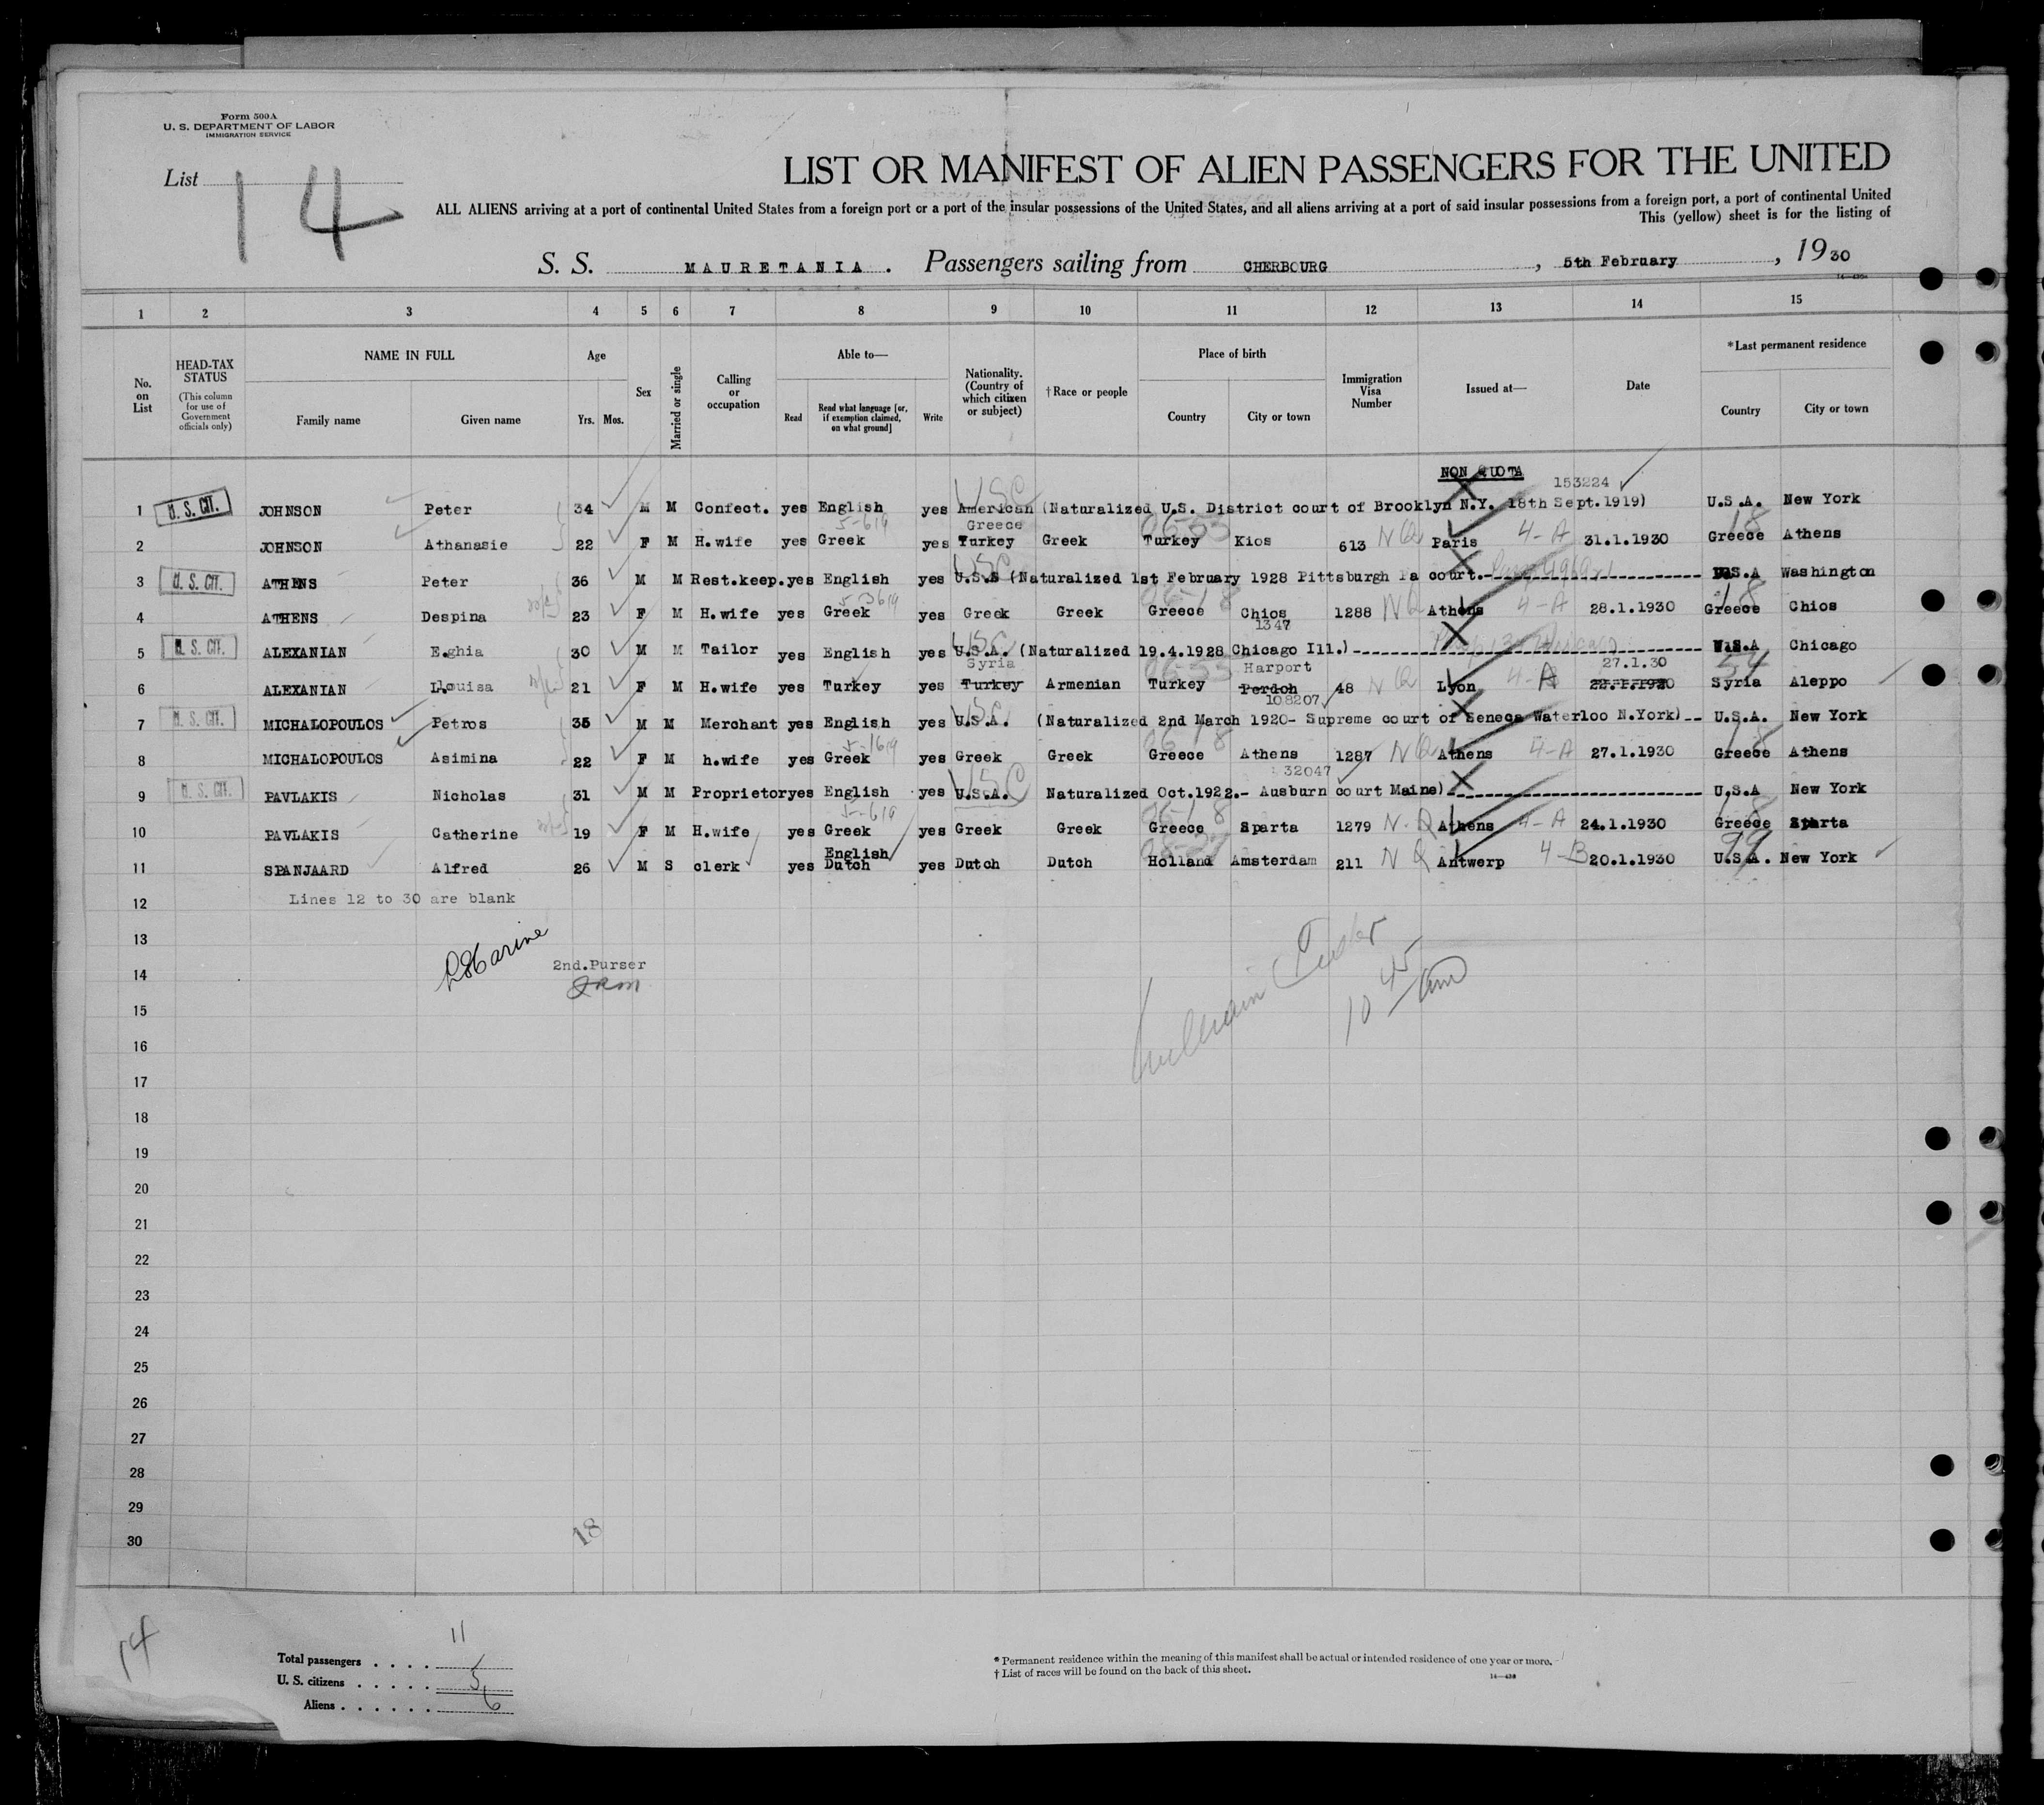 Form 500A
U. S. DEPARTMENT OF LABOR
IMMIGRATION SERVICE
List 14
LIST OR MANIFEST OF ALIEN PASSENGERS FOR THE UNITED
ALL ALIENS arriving at a port of continental United States from a foreign port or a port of the insular possessions of the United States, and all aliens arriving at a port of said insular possessions from a foreign port, a port of continental United
This (yellow) sheet is for the listing of
S. S. MAURETANIA . Passengers sailing from CHERBOURG , 5th February , 1930
1 2 3 4 5 6 7 8 9 10 11 12 13 14 15
No. on List
HEAD-TAX STATUS (This column for use of Government officials only)
NAME IN FULL
Family name Given name
Age
Yrs. Mos.
Sex
Married or single
Calling or occupation
Able to—
Read Read what language [or, if exemption claimed, on what ground] Write
Nationality. (Country of which citizen or subject)
†Race or people
Place of birth
Country City or town
Immigration Visa Number
Issued at—
Date
*Last permanent residence
Country City or town
NON QUOTA
153224
1 U. S. CIT. JOHNSON Peter 34 M M Confect. yes English yes American (Naturalized U.S. District court of Brooklyn N.Y. 18th Sept.1919) U.S.A. New York
USC
Greece
2 JOHNSON Athanasie 22 F M H.wife yes Greek yes Turkey Greek Turkey Kios 613 NQ Paris 4-A 31.1.1930 Greece Athens
3 U. S. CIT. ATHENS Peter 36 M M Rest.keep. yes English yes U.S.A (Naturalized 1st February 1928 Pittsburgh Pa court.- U.S.A Washington
USC
4 ATHENS Despina 23 F M H.wife yes Greek yes Greek Greek Greece Chios 1288 NQ Athens 4-A 28.1.1930 Greece Chios
1347
5 U. S. CIT. ALEXANIAN E.ghia 30 M M Tailor yes English yes U.S.A. (Naturalized 19.4.1928 Chicago Ill.) U.S.A Chicago
USC
Syria Harport 27.1.30
6 ALEXANIAN Louisa 21 F M H.wife yes Turkey yes Turkey Armenian Turkey Perdoh 48 NQ Lyon 4-A 22.1.1920 Syria Aleppo
108207
7 U. S. CIT. MICHALOPOULOS Petros 35 M M Merchant yes English yes U.S.A. (Naturalized 2nd March 1920- Supreme court of Seneca Waterloo N.York) U.S.A. New York
USC
8 MICHALOPOULOS Asimina 22 F M h.wife yes Greek yes Greek Greek Greece Athens 1287 NQ Athens 4-A 27.1.1930 Greece Athens
32047
9 U. S. CIT. PAVLAKIS Nicholas 31 M M Proprietor yes English yes U.S.A. Naturalized Oct.1922.- Ausburn court Maine) U.S.A New York
USC
10 PAVLAKIS Catherine 19 F M H.wife yes Greek yes Greek Greek Greece Sparta 1279 N.Q Athens 4-A 24.1.1930 Greece Sparta
English
11 SPANJAARD Alfred 26 M S clerk yes Dutch yes Dutch Dutch Holland Amsterdam 211 NQ Antwerp 4-B 20.1.1930 U.S.A. New York
12 Lines 12 to 30 are blank
13
14 2nd.Purser
15
16
17
18
19
20
21
22
23
24
25
26
27
28
29
30
18
14
Total passengers . . . . 11
U. S. citizens . . . . . 5
Aliens . . . . . . 6
* Permanent residence within the meaning of this manifest shall be actual or intended residence of one year or more.
† List of races will be found on the back of this sheet.
14—438